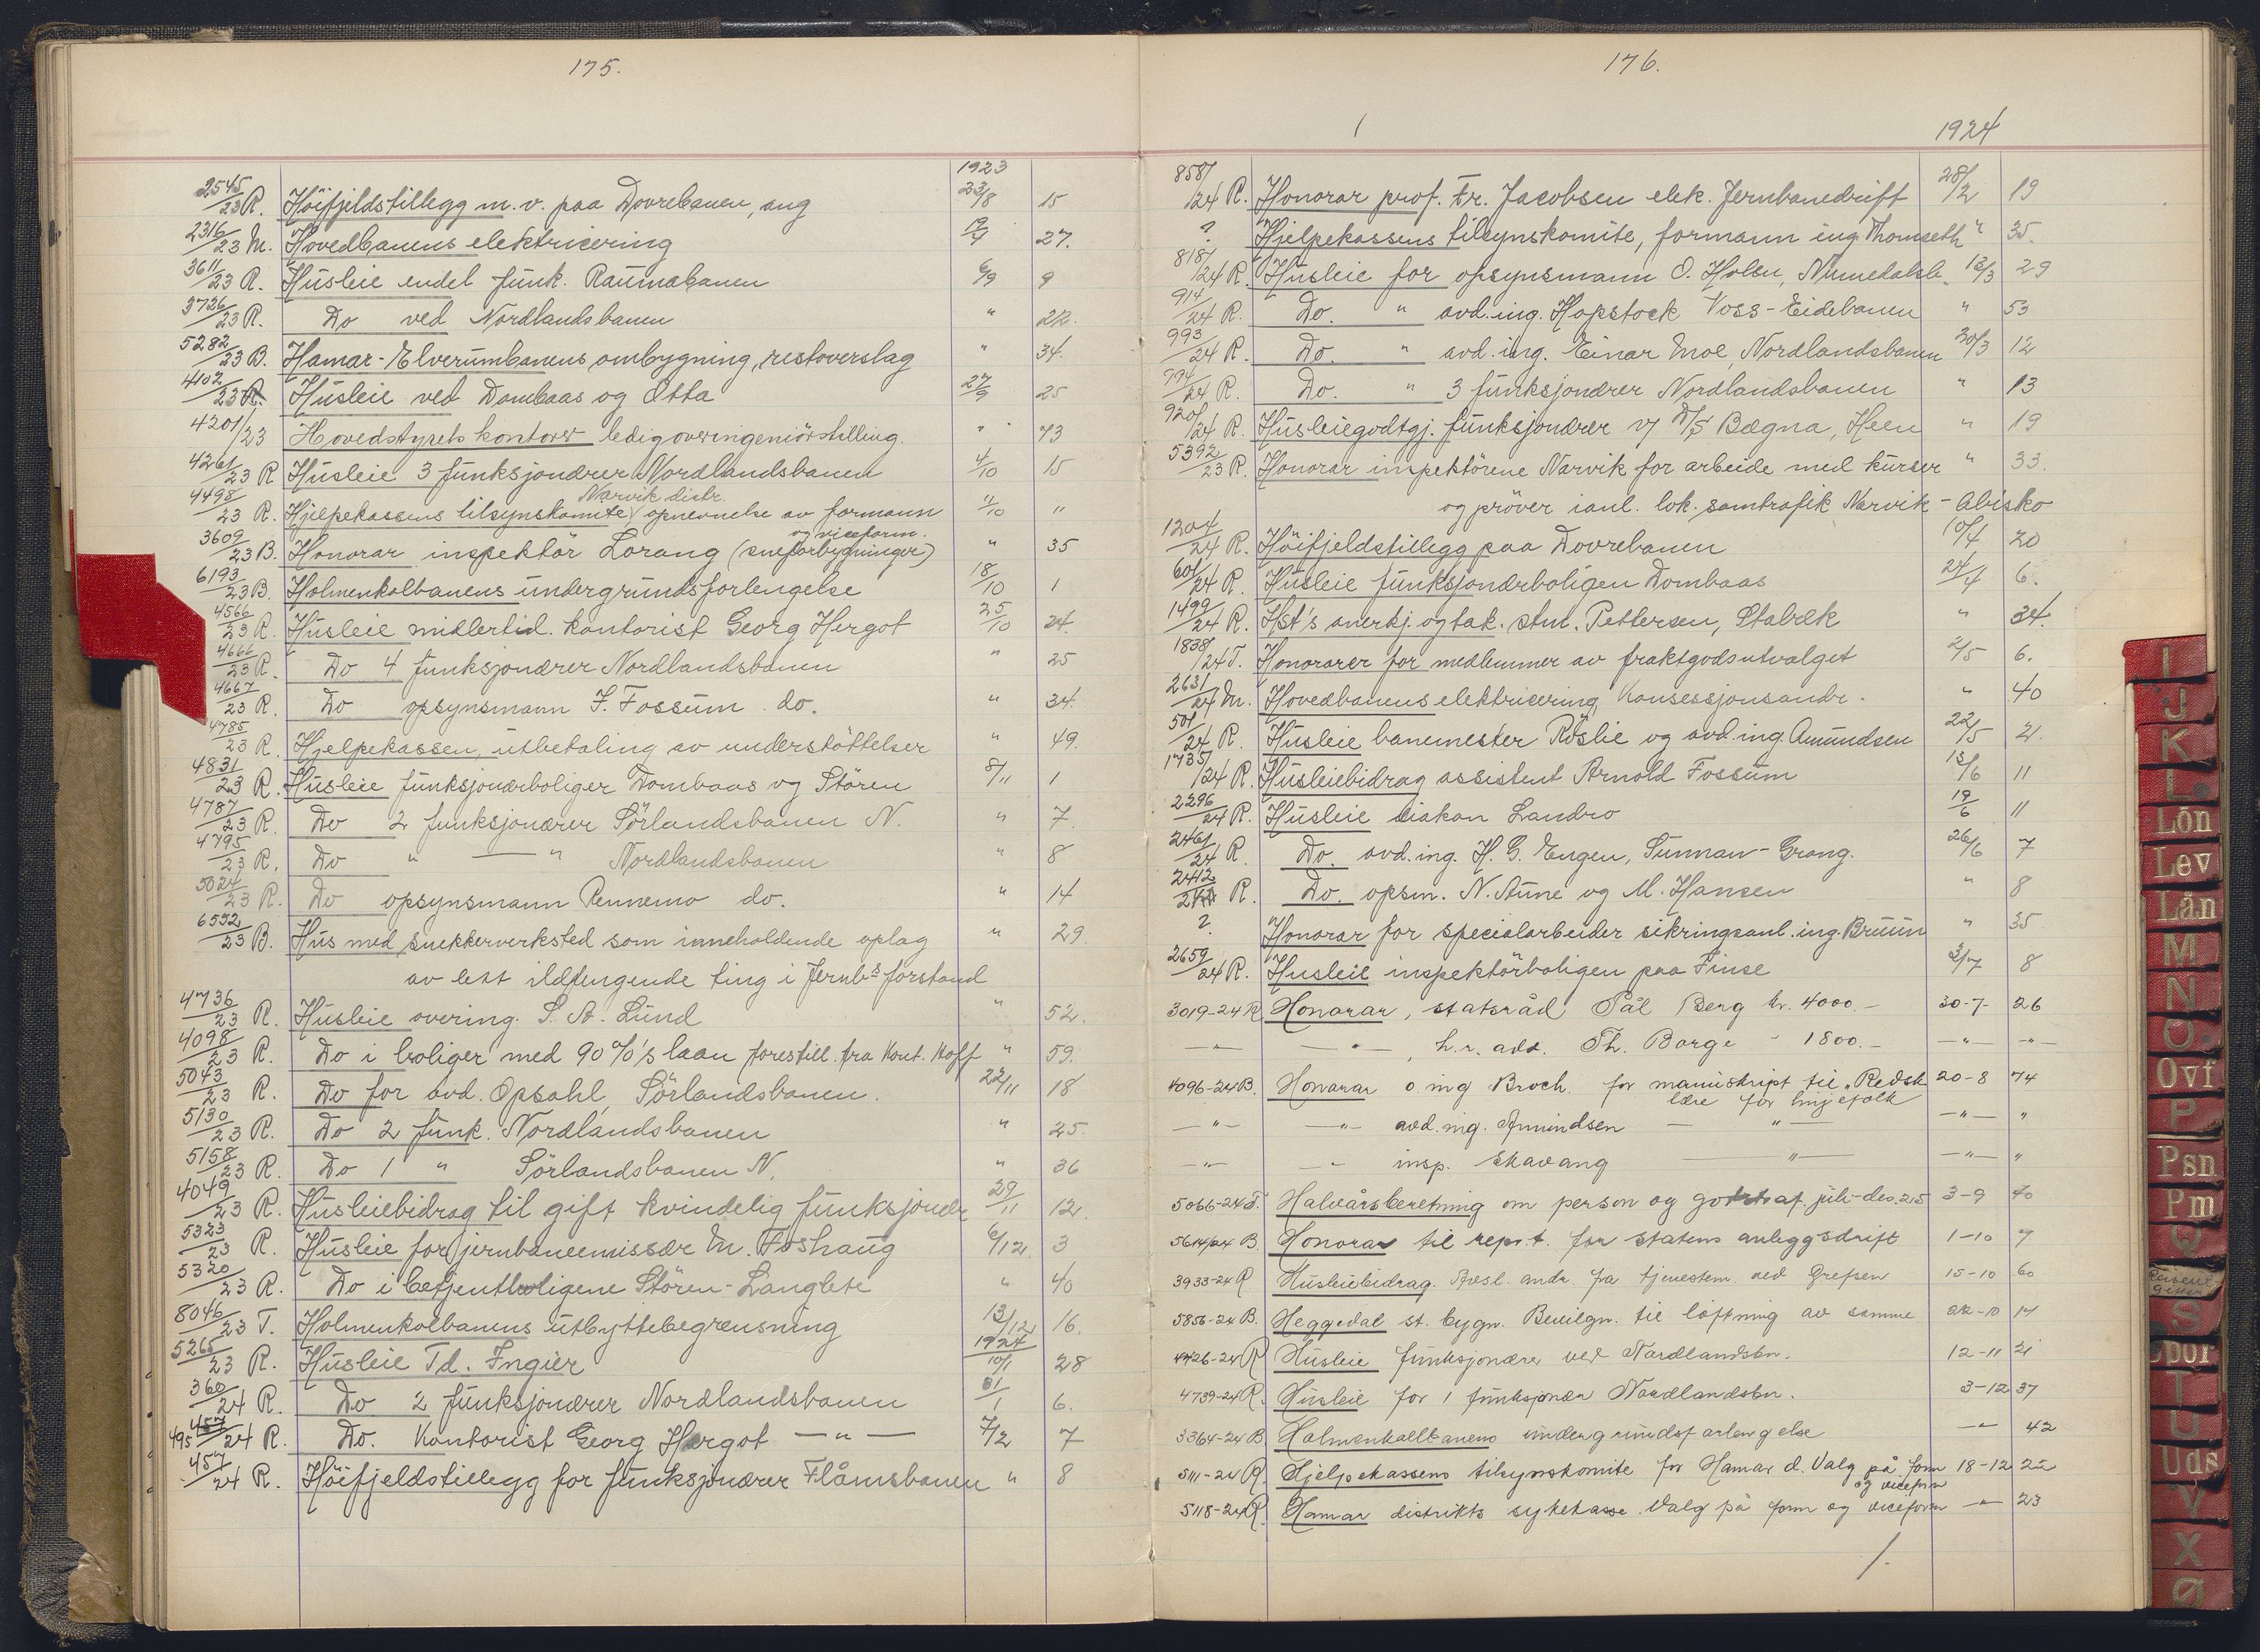 175.
1923
2545/23 R. Höifjeldstillegg m. v. paa Dovrebanen, ang 23/8 15
2316/23 M. Hovedbanens elektricering 27.
3611/23 R. Husleie endel funk. Raumabanen 6/9 9
3726/23 R. Do ved Nordlandsbanen " 22.
5282/23 B. Hamar-Elverumbanens ombygning, restoverslag " 34.
4102/23 R. Husleie ved Dombaas og Otta 27/9 25
4201/23 Hovedstyrets kontorer ledig overingeniörstilling. " 43
4261/23 R Husleie 3 funksjonærer Nordlandsbanen 4/10 15
Narvik distr.
4498/23 R. Hjelpekassens tilsynskomite, opnevnelse av formann 11/10 "
og viceform.
3609/23 B. Honorar inspektör Lorang (sneforbygninger) " 35
6193/23 B. Holmenkolbanens undergrundsforlengelse 18/10 1
4566/23 R. Husleie midlertid. kontorist Georg Hergot 25/10 24.
4666/23 R. Do 4 funksjonærer Nordlandsbanen " 25
4667/23 R. Do opsynsmann J. Fossum do. " 34.
4785/23 R. Hjelpekassen, utbetaling av understöttelser " 49.
4831/23 R. Husleie funksjonærboliger Dombaas og Stören 8/11 1
4787/23 R. Do 2 funksjonærer Sörlandsbanen N. " 7.
4795/23 R. Do " — " Nordlandsbanen " 8
5024/23 R. Do opsynsmann Rennemo do. " 14
6552/23 B. Hus med snekkerverksted som inneholdende oplag " 29.
av lett ildfengende ting i Jernbs forstand
4736/23 R. Husleie overing. S. A. Lund " 52.
4098/23 R. Do i boliger med 90%'s laan forestill. fra Kont. Hoff " 59.
5043/23 R. Do for avd. Opsahl, Sörlandsbanen. 22/11 18
5130/23 R. Do 2 funk. Nordlandsbanen " 25.
5158/23 R. Do 1 " Sörlandsbanen N. " 36
4049/23 R. Husleiebidrag til gift kvindelig funksjonær 29/11 12.
5323/23 R. Husleie for jernbaneemissær M. Foshaug 6/12. 3
5320/23 R. Do i betjentboligene Stören-Langlete " 40
8046/23 T. Holmenkolbanens utbyttebegrensning 13/12 16.
1924
5265/23 R. Husleie Td. Ingier 10/1 28
360/24 R. Do 2 funksjonærer Nordlandsbanen 31/1 6.
495 457/24 R. Do. Kontorist Georg Hergot — " — 7/2 7
457/24 R. Höifjeldstillegg for funksjonærer Flåmsbanen " 8
176.
1924
858/24 R. Honorar prof. Fr. Jacobsen elek. Jernbanedrift 28/2 19
? Hjelpekassens tilsynskomite, formann ing. Thomseth " 35.
818/24 R. Husleie for opsynsmann O. Holsn, Numedalsb. 13/3 29
914/24 R. Do. " avd. ing. Hopstock Voss-Eidebanen " 53
993/24 R. Do. " avd. ing. Einar Moe, Nordlandsbanen 20/3 12
994/24 R. Do. " 3 funksjonærer Nordlandsbanen " 13
920/24 R. Husleiegodtgj. funksjonærer v/ D/S Bægna, Heen " 19
5392/23 R. Honorar inspektörene Narvik for arbeide med kurser " 33.
og pröver ianl. lok. samtrafik Narvik - Abisko
1204/24 R. Höifjeldstillegg paa Dovrebanen 10/4 20
601/24 R. Husleie funksjonærboligen Dombaas 24/4 6.
1499/24 R. Hst's anerkj. og tak. stm. Pettersen, Stabæk " 34.
1838/24 T. Honorarer for medlemmer av fraktgodsutvalget 2/5 6.
2631/24 M. Hovedbanens elektricering, Konsessjonsandr. " 40
501/24 R. Husleie banemester Röslie og avd. ing. Amundsen 22/5 21.
1735/24 R. Husleiebidrag assistent Arnold Fossum 13/6 11
2296/24 R. Husleie diakon Landro 19/6 11
2461/24 R Do. avd. ing. H. G. Engen, Sunnan-Grong. 26/6 7
2412/24 R. Do. opsm. N. Aune og M. Hansen " 8
? Honorar for specialarbeider sikringsanl. ing. Bruun " 35
2659/24 R. Husleie inspektörboligen paa Finse 3/7 8
3019-24 R Honorar, statsråd Pål Berg kr. 4000.- 30-7- 26
—"— —"—, h.r. adv. Th. Borge " 1800.- —"— —"—
4096-24 B. Honorar o. ing Broch. for manuskript til „Redsk 20-8 74
lære for linjefolk
—"— —"— avd. ing. Amundsen — " — —"— "
—"— —"— insp. Skavang — " — —"— "
5066-24 T. Halvårsberetning om person og godstraf. juli-des. 25 3-9 40
5614/24 B. Honorar til repr.t. for statens anleggsdrift 1-10 7
3933-24 R Husleiebidrag. andr. fra tjenestem. ved Grefsen 15-10 60
5856-24 B. Heggedal st. bygn. Bevilgn. til löftning av samme 22-10 14
4426-24 R Husleie funksjonærer ved Nordlandsbn. 12-11 21
4739-24 R. Husleie for 1 funksjonær Nordlandsbn. 3-12 37
3364-24 B Holmenkollbanens undergrundsforlengelse —"— 42
5111-24 R. Hjelpekassens tilsynskomite for Hamar d. Valg på form 18-12 22
og viceform
5118-24 R. Hamar distrikts sykekasse. Valg på form og viceform —"— 23
I
J
K
L
Lön
Lev
Lån
M
N
O
Ovf
P
Psn
Pm
Q
S
Spor
T
U
Uds
V
X
Ø